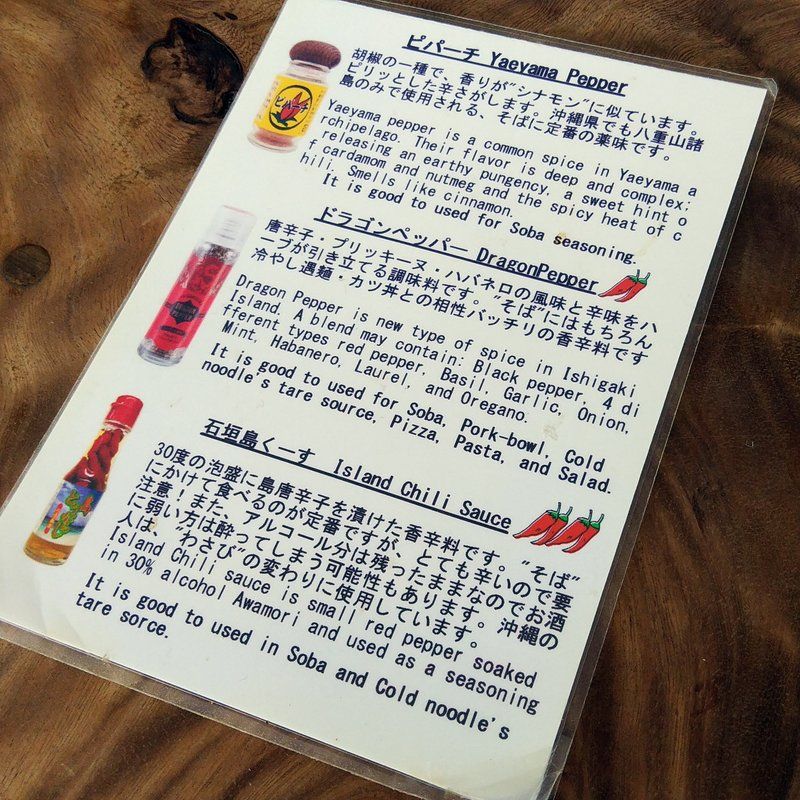 ピパーチ Yaeyama Pepper
胡椒の一種で、香りが"シナモン"に似ています。
ピリッとした辛さがします。沖縄県でも八重山諸
島のみで使用される、そばに定番の薬味です。
Yaeyama pepper is a common spice in Yaeyama a
rchipelago. Their flavor is deep and complex;
releasing an earthy pungency, a sweet hint o
f cardamom and nutmeg and the spicy heat of c
hili. Smells like cinnamon.
It is good to used for Soba seasoning.
ピパーチ
ドラゴンペッパー DragonPepper
唐辛子・プリッキーヌ・ハバネロの風味と辛味をハ
ーブが引き立てる調味料です。"そば"にはもちろん
冷やし遇麺・カツ丼との相性バッチリの香辛料です
Dragon Pepper is new type of spice in Ishigaki
Island. A blend may contain: Black pepper, 4 di
fferent types red pepper, Basil, Garlic, Onion,
Mint, Habanero, Laurel, and Oregano.
It is good to used for Soba, Pork-bowl, Cold
noodle's tare source, Pizza, Pasta, and Salad.
石垣島くーす Island Chili Sauce
30度の泡盛に島唐辛子を漬けた香辛料です。"そば"
にかけて食べるのが定番ですが、とても辛いので要
注意！また、アルコール分は残ったままなのでお酒
に弱い方は酔ってしまう可能性もあります。沖縄の
人は、"わさび"の変わりに使用しています。
Island Chili sauce is small red pepper soaked
in 30% alcohol Awamori and used as a seasoning
It is good to used in Soba and Cold noodle's
tare sorce.